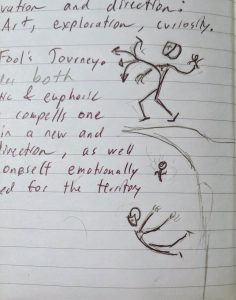 vation and direction:
Art, exploration, curiosity.
Fool's Journey.
both
& euphoric
compells one
in a new and
direction, as well
oneself emotionally
ed for the territory